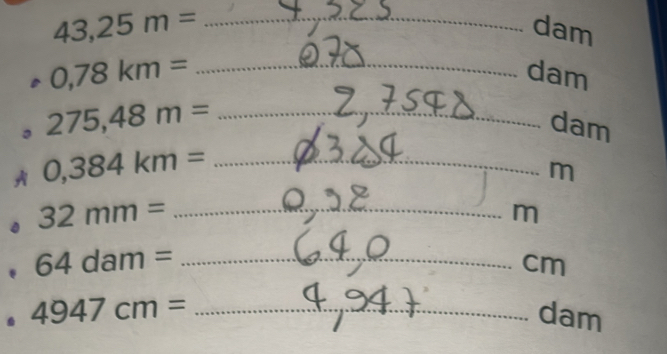 43,25 m = 4,325 dam
0,78 km = 078 dam
275,48 m = 2,7548 dam
0,384 km = 0384 m
32 mm = 0,32 m
64 dam = 64,0 cm
4947 cm = 4,947 dam